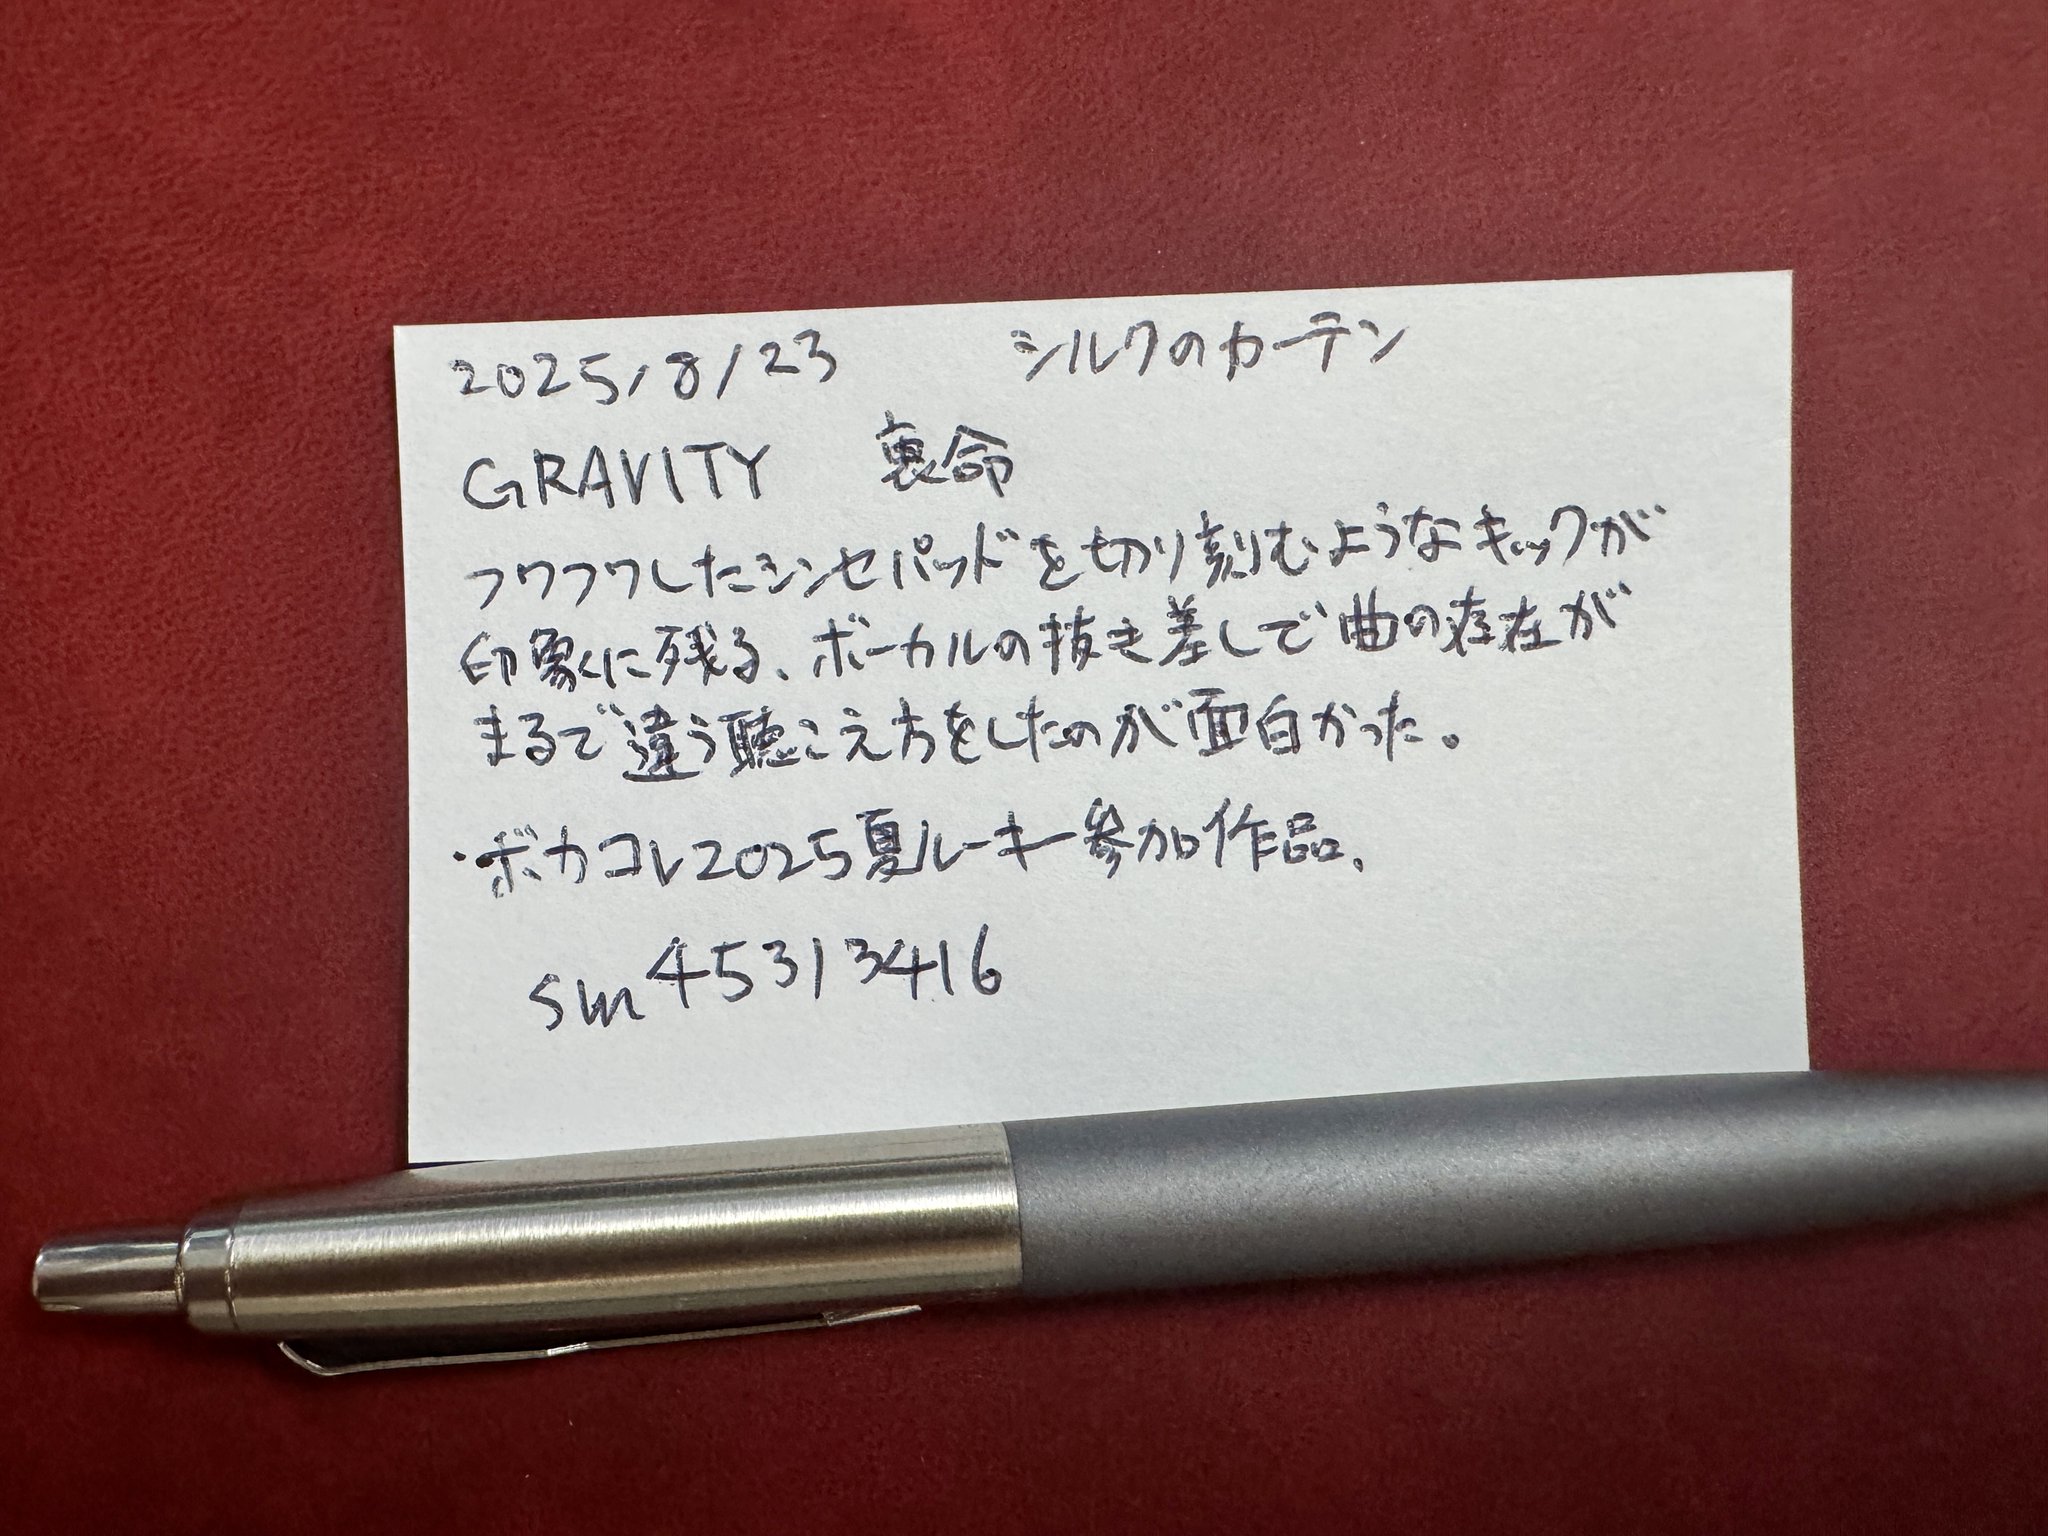 2025/8/23 シルクのカーテン
GRAVITY 裏命
フワフワしたシンセパッドを切り刻むようなキックが
印象に残る、ボーカルの抜き差しで曲の存在が
まるで違う聴こえ方をしたのが面白かった。
・ボカコレ2025夏ルーキー参加作品、
sm45313416